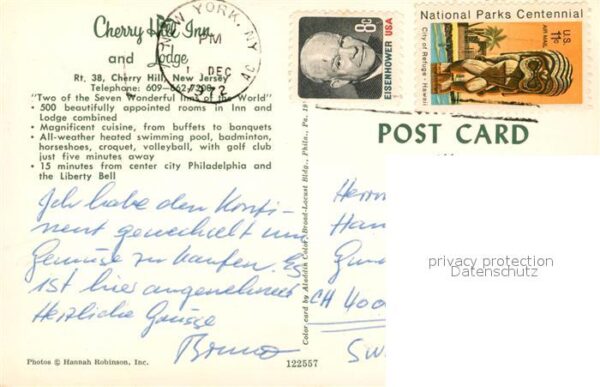 Cherry Hill Inn
and Lodge
Rt. 38, Cherry Hill, New Jersey
Telephone: 609-662-7200
"Two of the Seven Wonderful Inns of the World"
• 500 beautifully appointed rooms in Inn and
Lodge combined
• Magnificent cuisine, from buffets to banquets
• All-weather heated swimming pool, badminton,
horseshoes, croquet, volleyball, with golf club
just five minutes away
• 15 minutes from center city Philadelphia and
the Liberty Bell
Ich habe den Konti-
nent gewechselt um
Gemüse zu kaufen. Es
ist hier angenehmer
Herzliche Grüsse
Bruno
Photos © Hannah Robinson, Inc.
122557
Color card by Aladdin Color, Broad-Locust Bldg., Phila., Pa. 19
NEW YORK, N.Y.
PM
1 DEC
1972
8c
EISENHOWER USA
National Parks Centennial
City of Refuge - Hawaii
U.S.
11c
AIR MAIL
POST CARD
Herrn
Han
CH 400
SW
privacy protection
Datenschutz